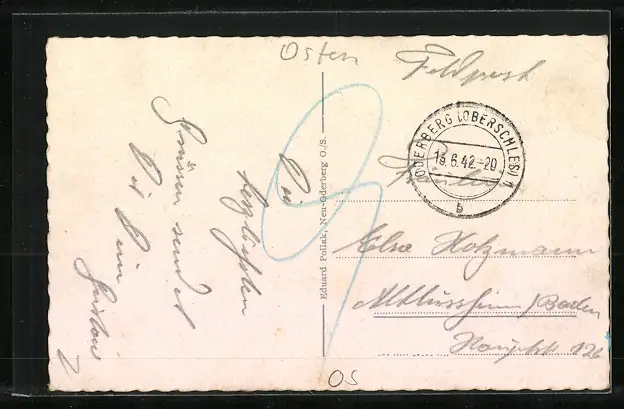 Osten
Feldpost
ODERBERG (OBERSCHLES) 1
19.6.42.-20
b
Fräulein
Die
herzlichsten
Grüssen sendet
Dir Dein
Gustav
Eduard Pollak, Neu-Oderberg O/S.
Elsa Hotzmann
Altlussheim/Baden
Hauptstr 126
OS